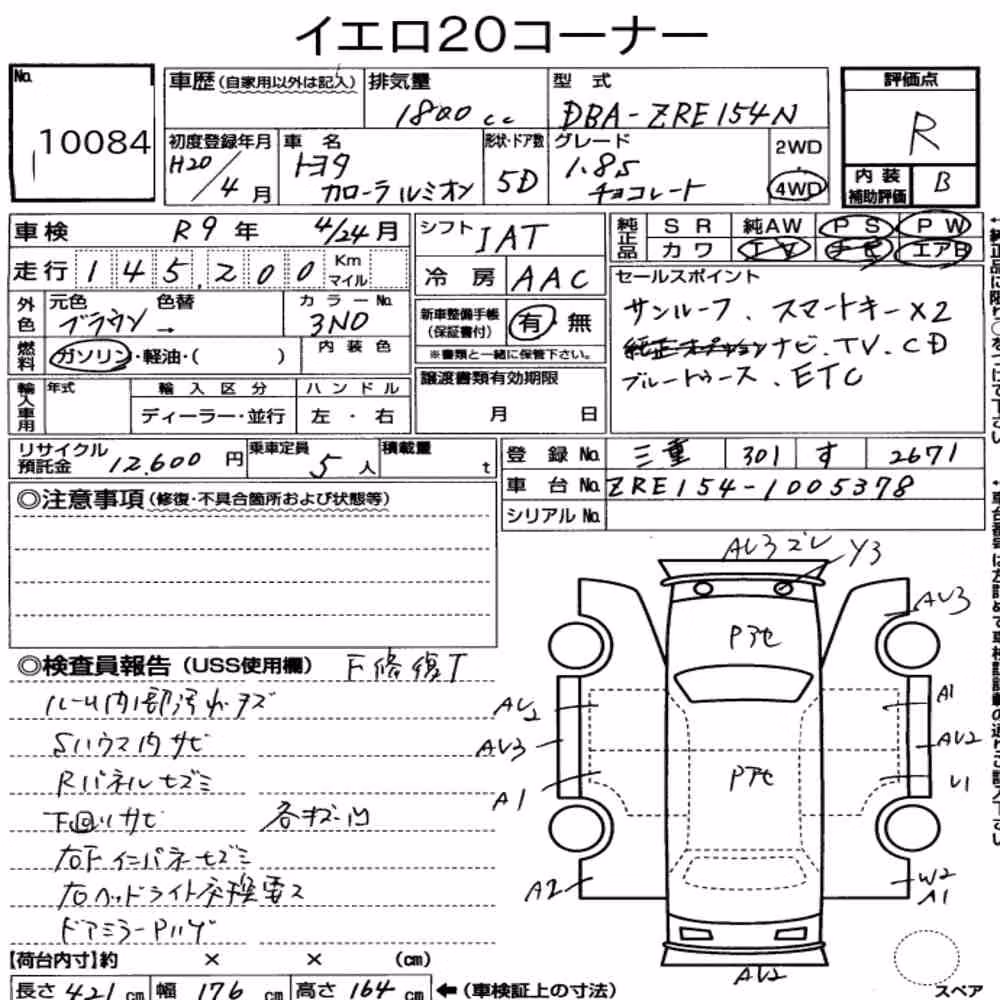 イエロ20コーナー
No.
10084
車歴(自家用以外は記入)
排気量
1800cc
型式
DBA-ZRE154N
評価点
R
初度登録年月
H20/4月
車名
トヨタ
カローラルミオン
形状・ドア数
5D
グレード
1.8S
チョコレート
2WD
4WD
内装
補助評価
B
車検 R9年 4/24月
走行 145,200 Km マイル
シフト IAT
冷房 AAC
純正品
SR 純AW PS PW
カワ TV ナビ エアB
外色
元色 色替
ブラウン→
カラーNo.
3N0
新車整備手帳
(保証書付)
有・無
※書類と一緒に保管下さい。
セールスポイント
サンルーフ、スマートキーX2
純正オプションナビ.TV.CD
ブルートゥース、ETC
燃料
ガソリン・軽油・( )
内装色
輸入車用
年式
輸入区分
ハンドル
ディーラー・並行
左・右
譲渡書類有効期限
月 日
リサイクル
預託金 12,600円
乗車定員
5人
積載量
t
登録No. 三重 301 す 2671
車台No. ZRE154-1005378
シリアルNo.
◎注意事項(修復・不具合箇所および状態等)
◎検査員報告(USS使用欄) F修復T
ルーム内部汚れキズ
Sハウス内サビ
Rパネルヒズミ
下回りサビ 各キズ凹
右Fインパネヒズミ
右ヘッドライト交換要ス
ドアミラーPハゲ
AU3 ズレ Y3
AU3
Pアセ
AU2
A1
AU3
AU2
Pアセ
A1
U1
A2
W2
A1
AU2
スペア
【荷台内寸】約 × × (cm)
長さ 421cm 幅 176cm 高さ 164cm ←(車検証上の寸法)